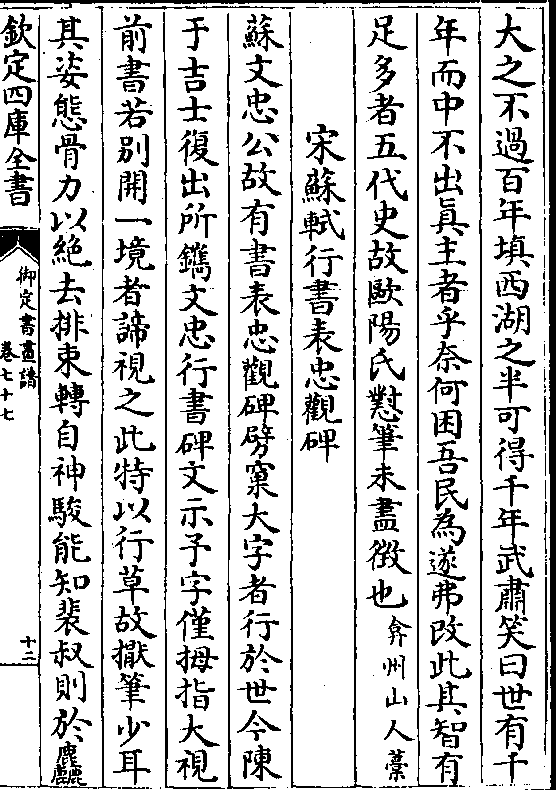 大之不過百年填西湖之半可得千年武肅笑曰世有千
年而中不出眞主者乎奈何困吾民為遂弗改此其智有
足多者五代史故歐陽氏懟筆未盡徴也弇州山人藳
宋蘇軾行書表忠觀碑
蘇文忠公故有書表忠觀碑劈窠大字者行於世今陳
于吉士復出所鐫文忠行書碑文示子字僅拇指大視
前書若别開一境者諦視之此特以行草故撳筆少耳
其姿態骨力以絶去排束轉自神駿能知裴叔則於麤
欽定四庫全書
御定書畫譜
卷七十七
十二